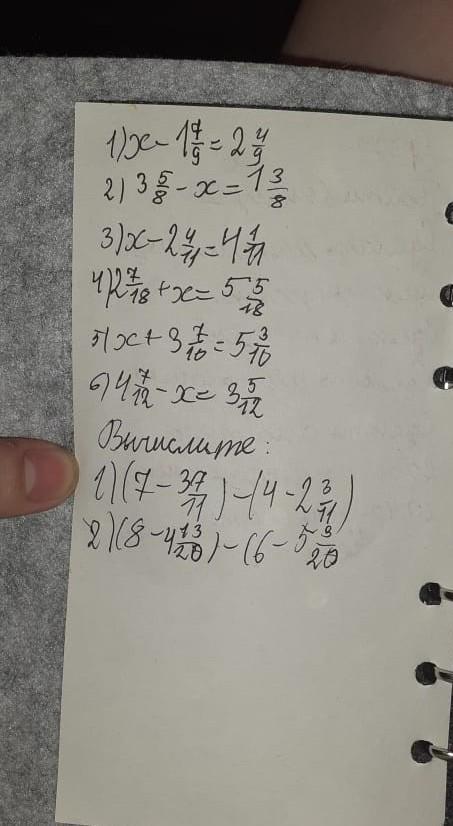 1) x - 1 7/9 = 2 4/9
2) 3 5/8 - x = 1 3/8
3) x - 2 4/11 = 4 1/11
4) 2 7/18 + x = 5 5/18
5) x + 3 7/10 = 5 3/10
6) 4 7/12 - x = 3 5/12
Вычислите:
1) (7 - 3 7/11) - (4 - 2 3/11)
2) (8 - 4 13/20) - (6 - 5 9/20